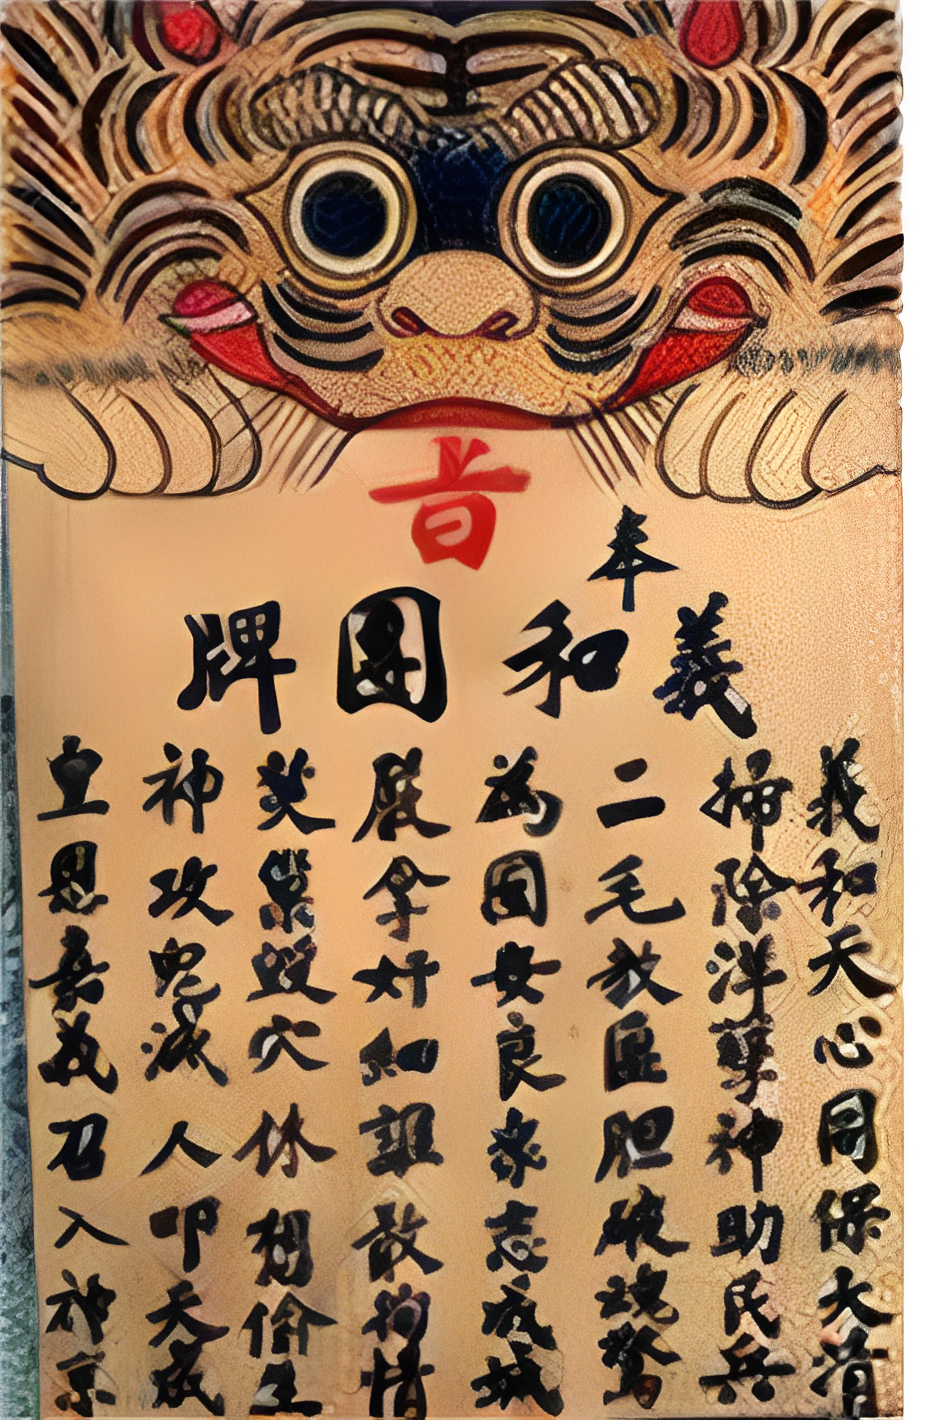 旨
奉
義和團牌
義和天心同保大清
掃除洋孽神助民兵
二毛教匪胆破魂驚
為國安良志成城
拿奸細敢情
焚巢毀穴休想偷生
神攻鬼滅人叩天威
皇恩義召入神京